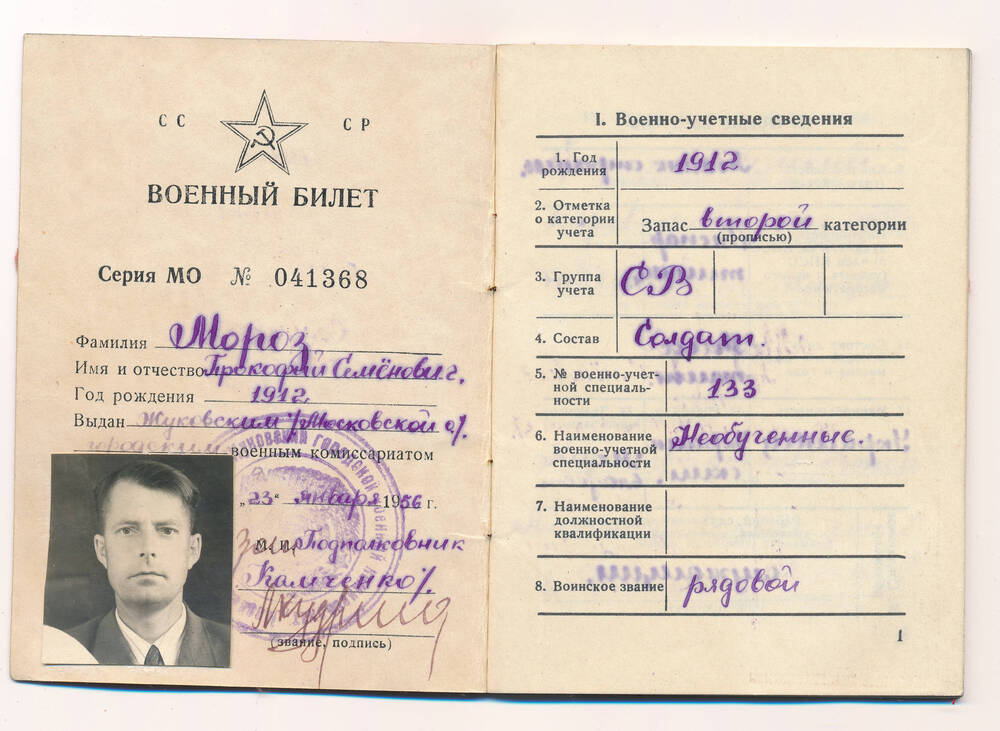 СС СР
ВОЕННЫЙ БИЛЕТ
Серия МО № 041368
Фамилия Мороз
Имя и отчество Прокофий Семёнович.
Год рождения 1912
Выдан Жуковским /Московской о/.
городским военным комиссариатом
„23“ января 1956 г.
М. П. Подполковник
/Камченко/.
(звание, подпись)
I. Военно-учетные сведения
1. Год рождения 1912
2. Отметка о категории учета Запас второй категории
(прописью)
3. Группа учета СВ
4. Состав Солдат.
5. № военно-учетной специальности 133
6. Наименование военно-учетной специальности Необученные.
7. Наименование должностной квалификации
8. Воинское звание рядовой
1